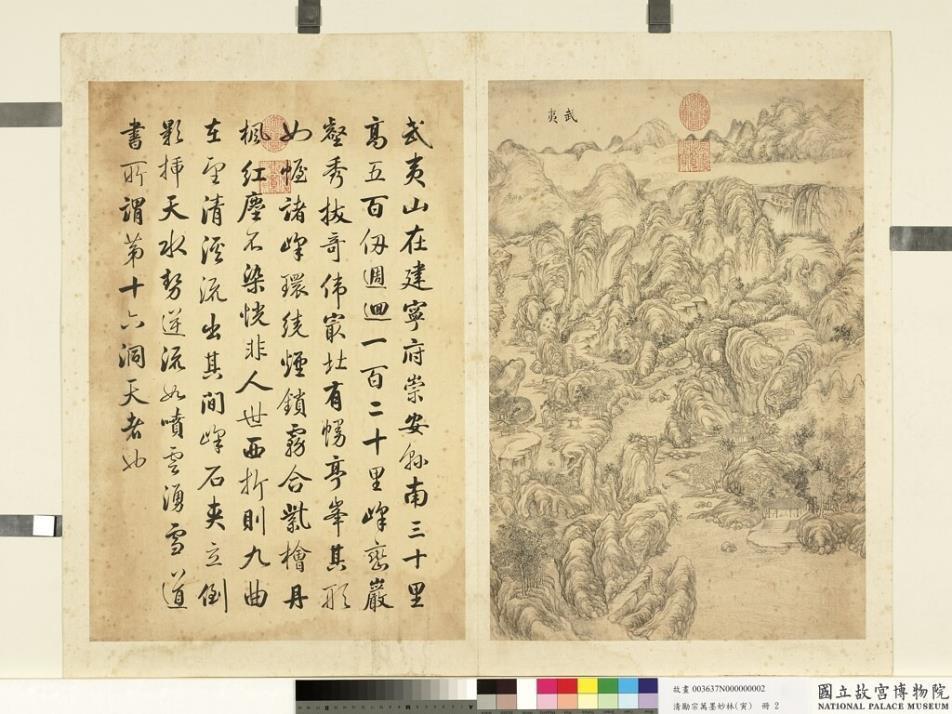 武夷
武夷山在建寧府崇安縣南三十里
高五百仞週迴一百二十里峰巒巖
壑秀拔奇偉㝡壯有幔亭峯其形
如幄諸峰環繞煙鎖霧合紫檜丹
楓紅塵不染恍非人世西折則九曲
在望清溪流出其間峰石夾立倒
影插天水勢逆流如噴雲湧雪道
書所謂第十六洞天者也
故畫 003637N000000002
清勵宗萬墨妙林(寅) 冊 2
國立故宮博物院
NATIONAL PALACE MUSEUM